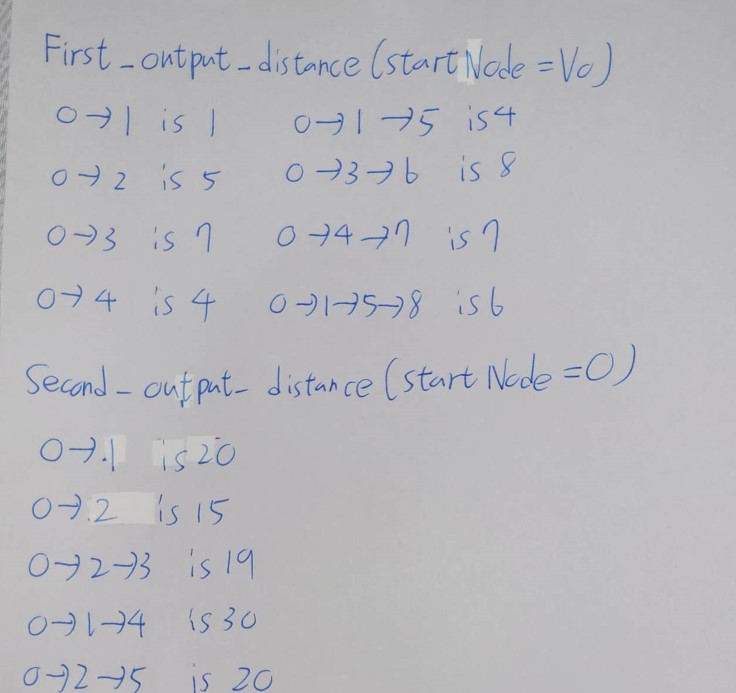 First_output_distance (start Node = V0)
0→1 is 1 0→1→5 is 4
0→2 is 5 0→3→6 is 8
0→3 is 7 0→4→7 is 7
0→4 is 4 0→1→5→8 is 6
Second_output_distance (start Node = 0)
0→1 is 20
0→2 is 15
0→2→3 is 19
0→1→4 is 30
0→2→5 is 20